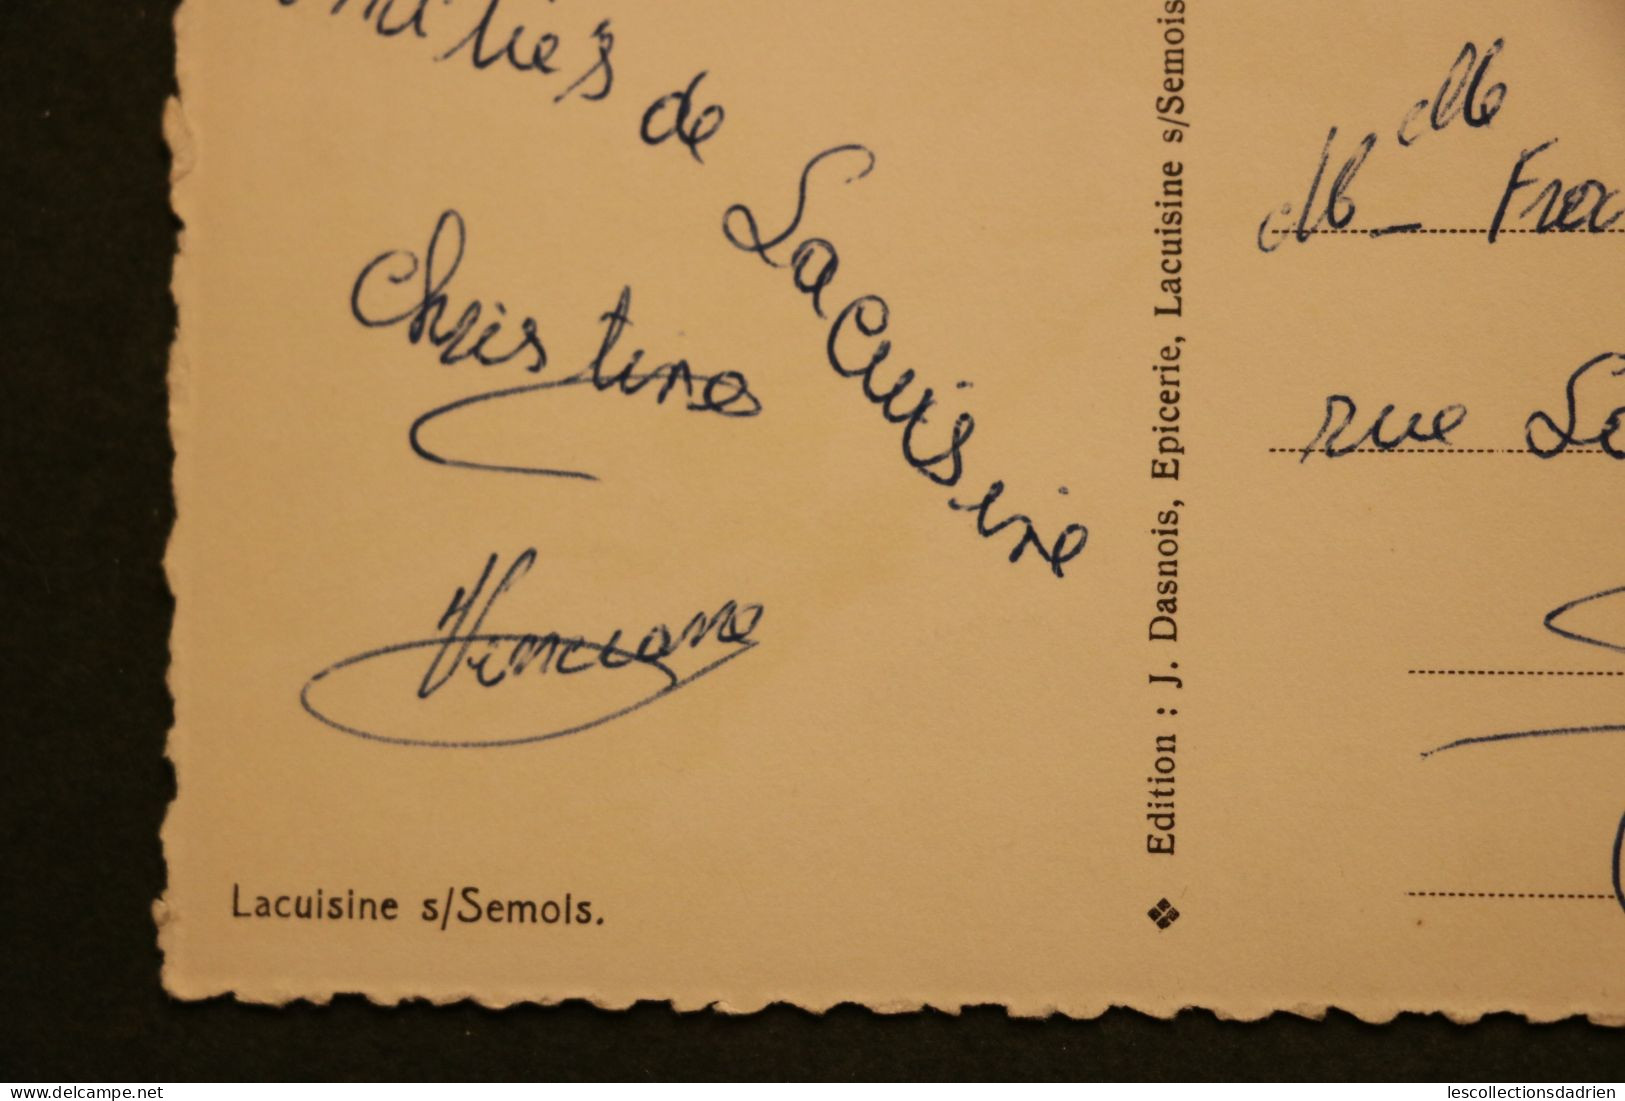 de Lacuisine
Christine
Vinciane
Lacuisine s/Semois.
Edition : J. Dasnois, Epicerie, Lacuisine s/Semois
Melle
rue
delcampe.net
lescollectionsdadrien